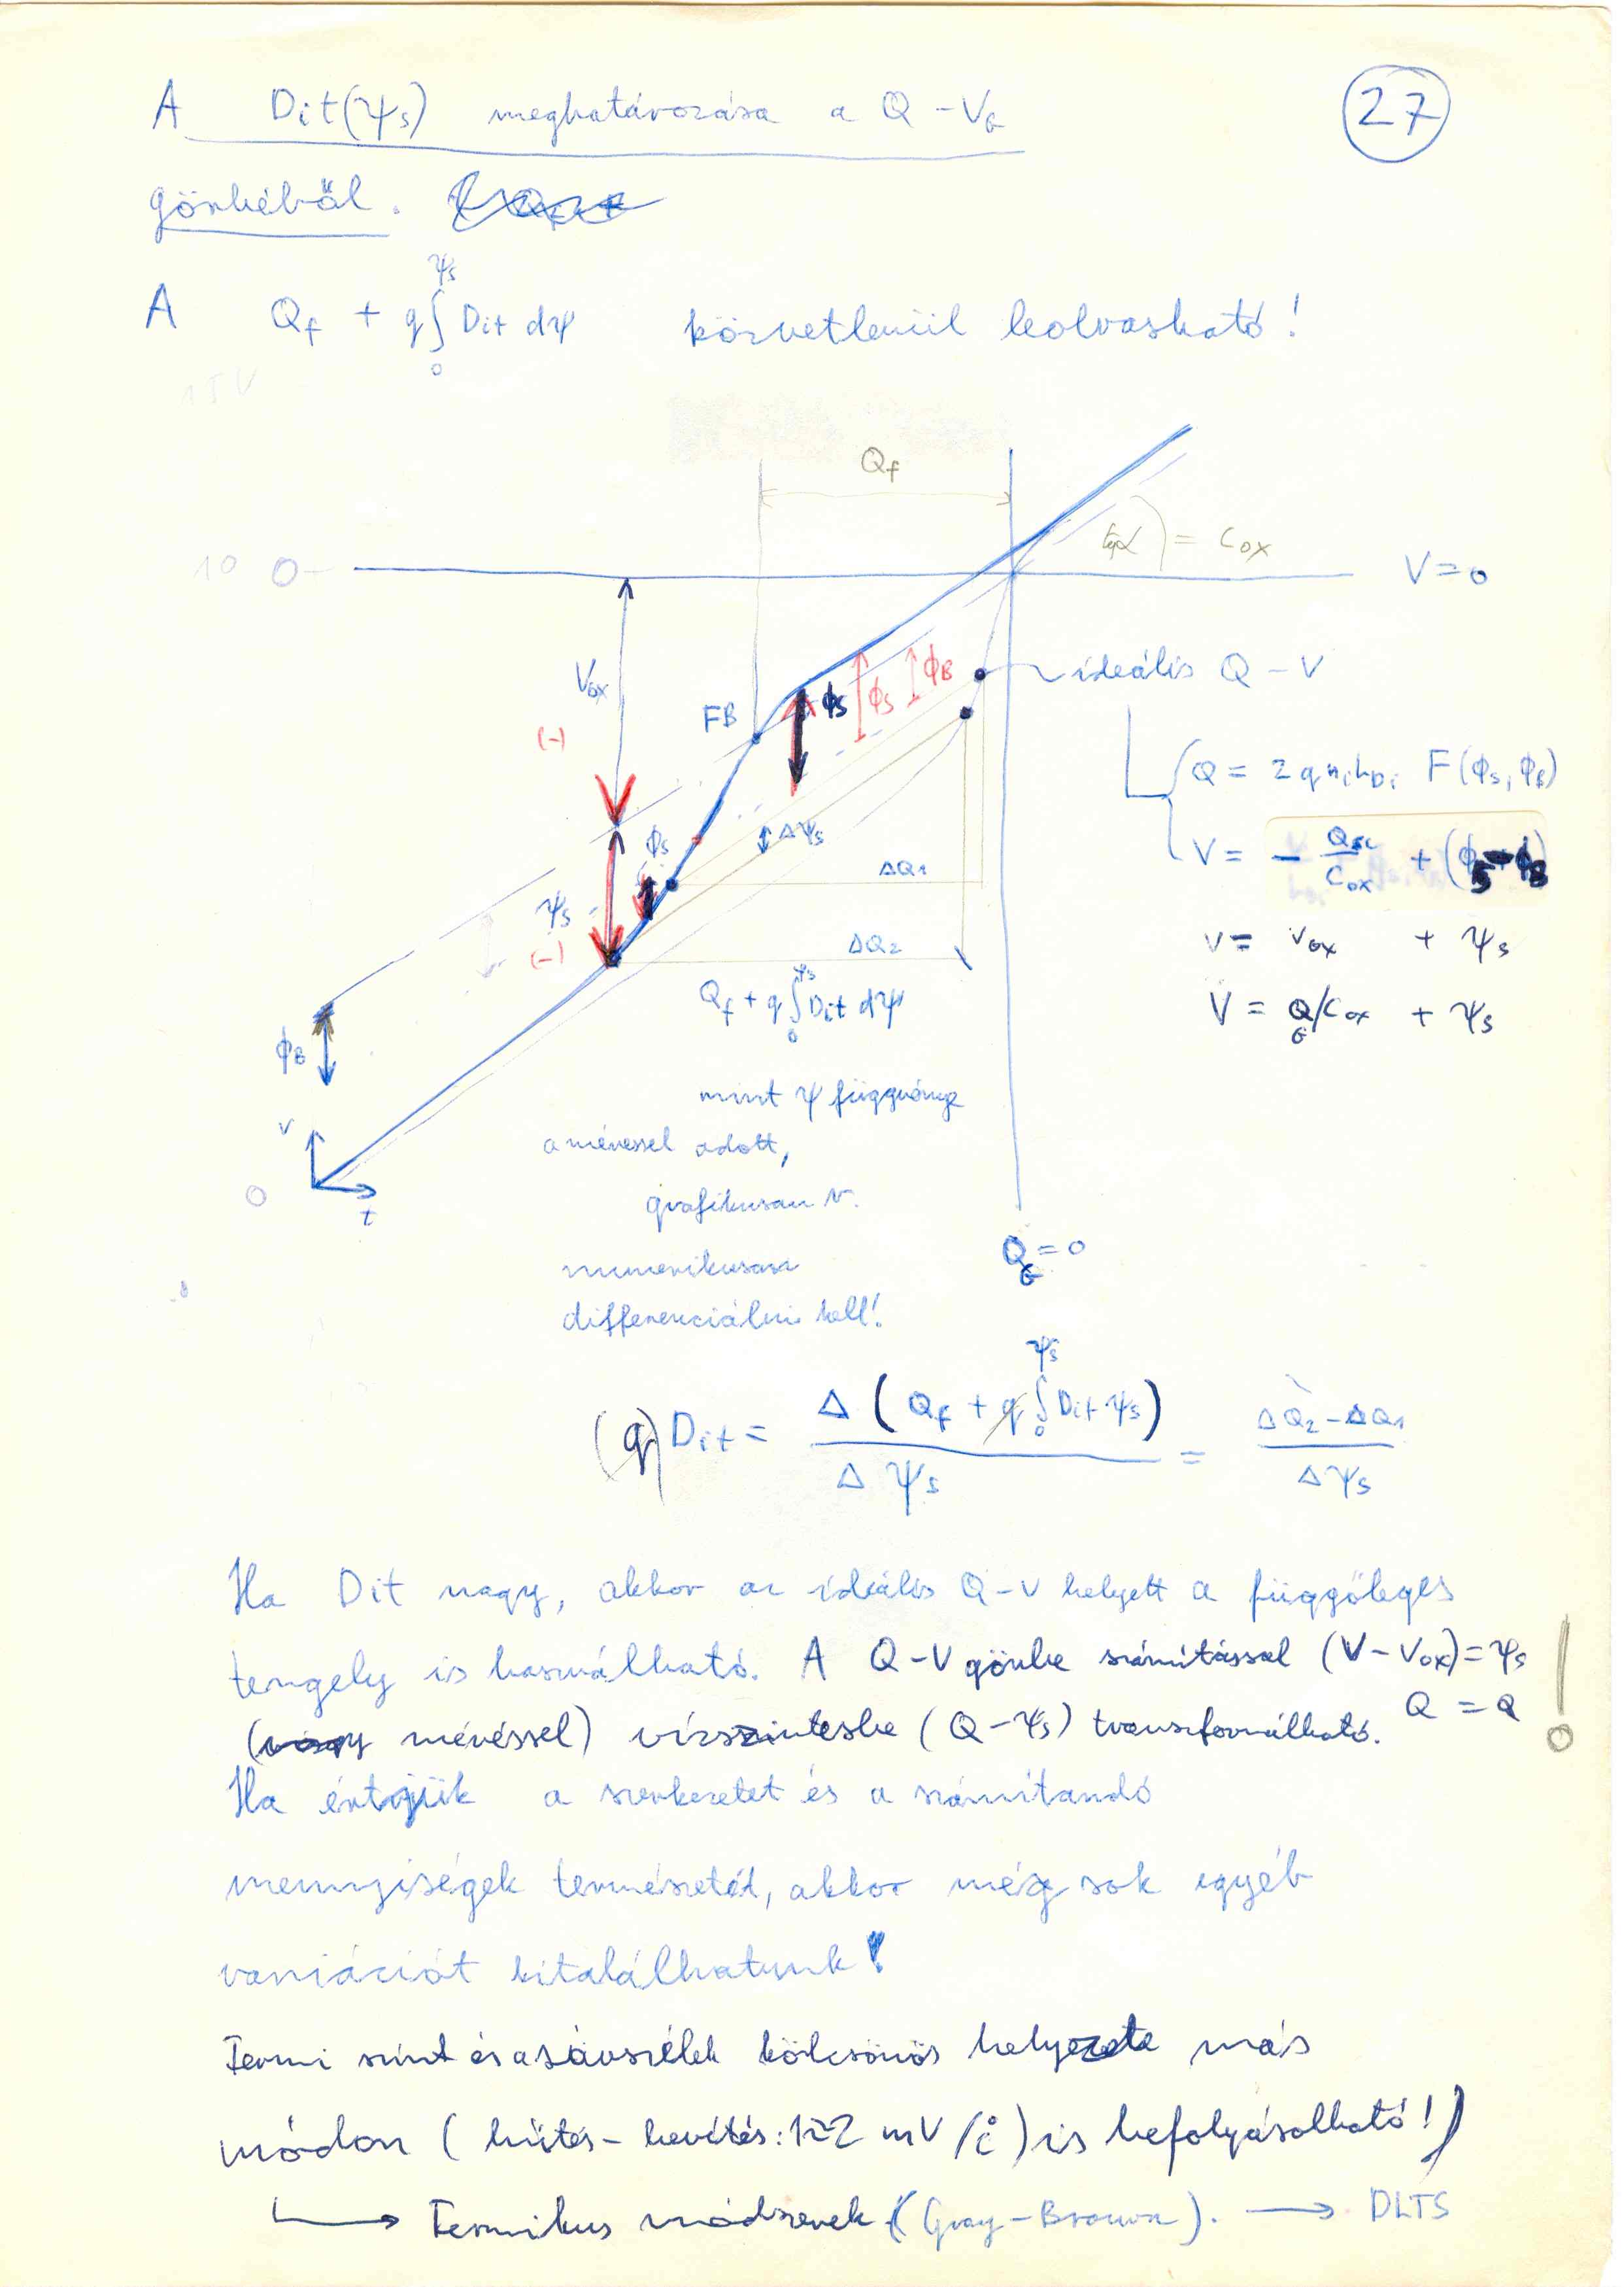 27
A Dit(ψs) meghatározása a Q-VG
görbéből.
A Qf + q∫Dit dψ közvetlenül leolvasható!
ψs
0
15V
Qf
tgα = Cox
10 0
V=0
Vox
(-)
FB
ϕs
ϕs
ϕB
ideális Q-V
Q = 2qniLDi F(ϕs, ϕB)
V = - Qsc/Cox + (ϕs-ϕB)
V = Vox + ψs
V = QG/Cox + ψs
ϕs
Δψs
ΔQ1
ψs
(-)
ΔQ2
Qf + q∫Dit dψ
ψs
0
ϕB
mint ψ függvénye
a méréssel adott,
grafikusan v.
numerikusan
differenciálni kell!
V
t
0
QG=0
(q)Dit = Δ(Qf + q∫Dit ψs) / Δψs = ΔQ2-ΔQ1 / Δψs
ψs
0
Ha Dit nagy, akkor az ideális Q-V helyett a függőleges
tengely is használható. A Q-V görbe számítással (V-Vox)=ψs
(vagy méréssel) vízszintesbe (Q-ψs) transzformálható. Q = Q !
Ha értjük a szerkezetet és a számítandó
mennyiségek természetét, akkor még sok egyéb
variációt kitalálhatunk!
Fermi szint és a sávszélek kölcsönös helyzete más
módon (hűtés-hevítés: 1÷2 mV/°C) is befolyásolható!)
Termikus módszerek (Gray-Brown). → DLTS